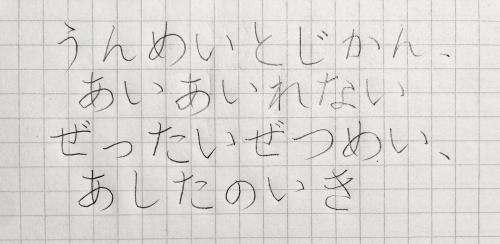 うんめいとじかん、
あいあいれない
ぜったいぜつめい、
あしたのいき